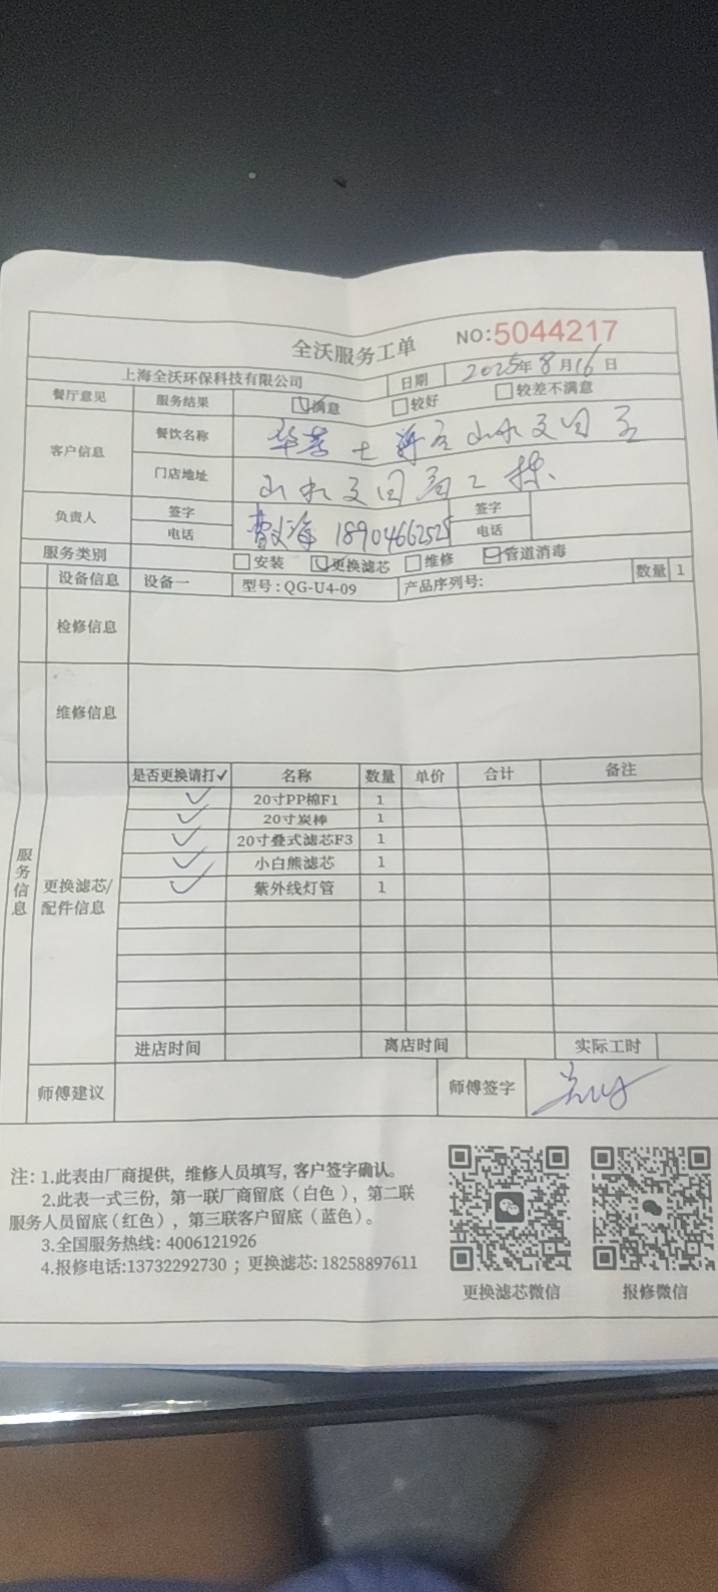 全沃服务工单 NO:5044217
上海全沃环保科技有限公司 日期 2025年8月16日
餐厅意见 服务结果 满意 较好 较差不满意
客户信息 餐饮名称 华莱士
门店地址 山水文园
负责人 签字 签字
电话 18904662525 电话
服务类别 安装 更换滤芯 维修 管道消毒
设备信息 设备一 型号:QG-U4-09 产品序列号: 数量 1
检修信息
维修信息
服务信息
更换滤芯/配件信息
是否更换请打✓ 名称 数量 单价 合计 备注
✓ 20寸PP棉F1 1
✓ 20寸炭棒 1
✓ 20寸叠式滤芯F3 1
✓ 小白熊滤芯 1
✓ 紫外线灯管 1
进店时间 离店时间 实际工时
师傅建议 师傅签字
注:1.此表由厂商提供,维修人员填写,客户签字确认。
2.此表一式三份,第一联厂商留底(白色),第二联
服务人员留底(红色),第三联客户留底(蓝色)。
3.全国服务热线:4006121926
4.报修电话:13732292730;更换滤芯:18258897611
更换滤芯微信 报修微信